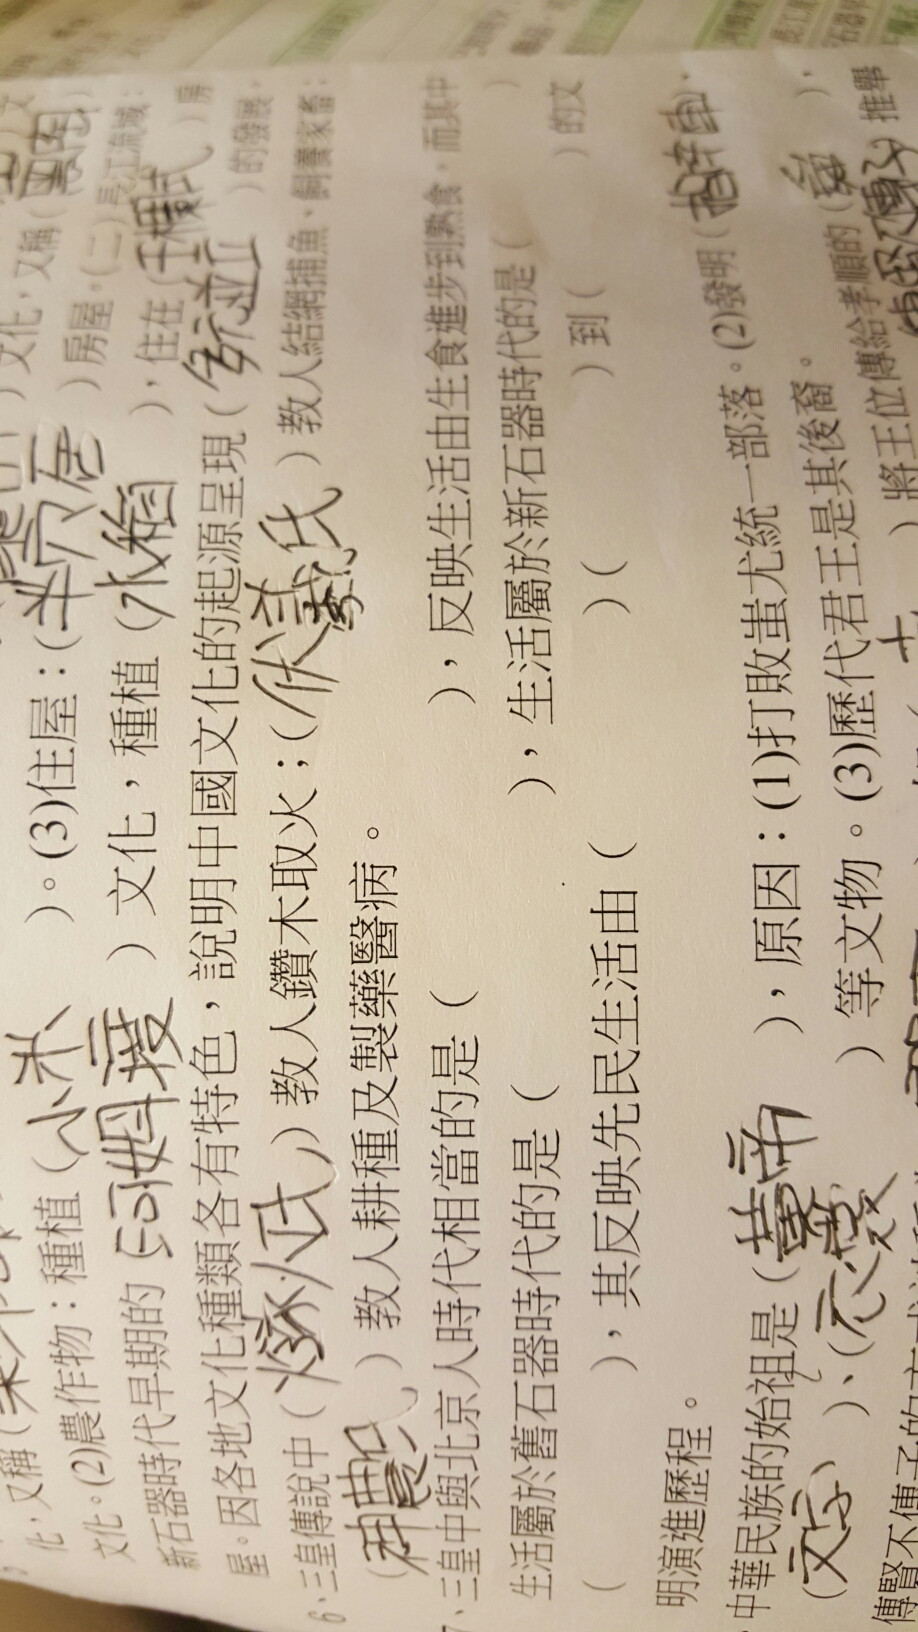 化，又稱（ ）文化，又稱（
文化。(2)農作物：種植（小米 ）。(3)住屋：（半穴居 ）房屋。(二)長江流域：
新石器時代早期的 河姆渡 ）文化，種植（水稻 ），住在（干欄式 ）房
屋。因各地文化種類各有特色，說明中國文化的起源呈現（多元並立 ）的發展。
6、三皇傳說中（燧人氏 ）教人鑽木取火；（伏羲氏 ）教人結網捕魚、飼養家畜；
（神農氏 ）教人耕種及製藥醫病。
7、三皇中與北京人時代相當的是（ ），反映生活由生食進步到熟食，而其中
生活屬於舊石器時代的是（ ），生活屬於新石器時代的是（ ）
（ ），其反映先民生活由（ ）（ ）到（ ）的文
明演進歷程。
、中華民族的始祖是（黃帝 ），原因：(1)打敗蚩尤統一部落。(2)發明（指南車 ）、
（文字 ）、（衣裳 ）等文物。(3)歷代君王是其後裔。
）將王位傳給孝順的（舜 ），
傳賢不傳子的方式 推舉